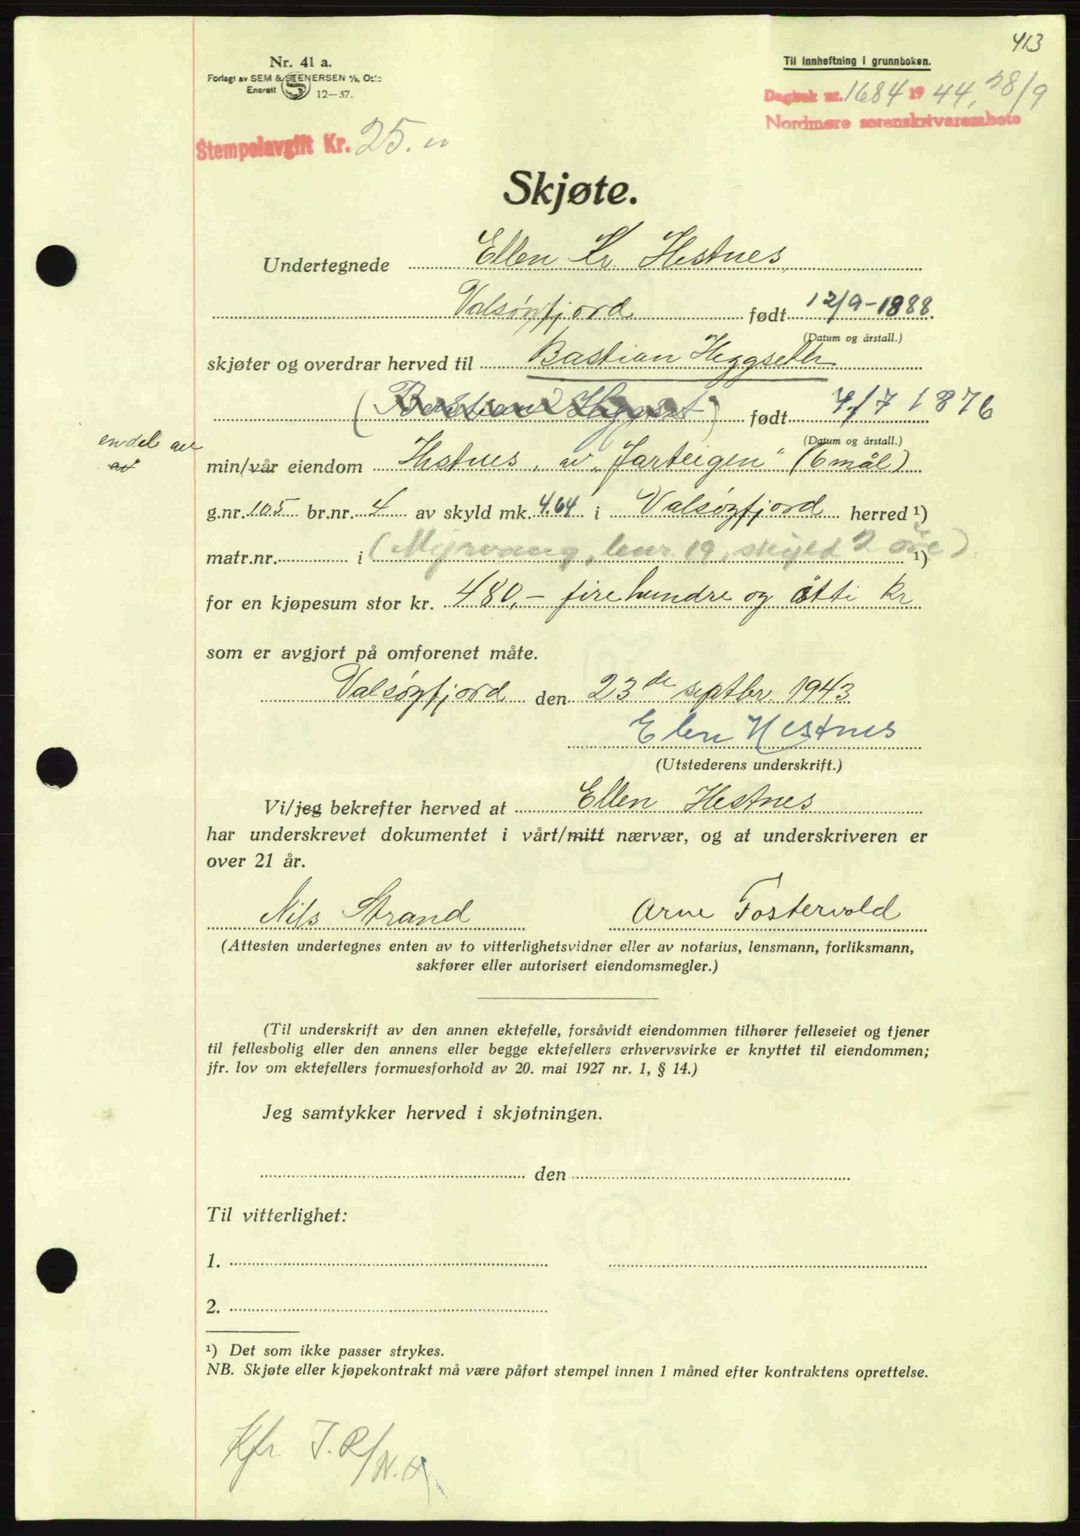 413
Nr. 41 a.
Forlagt av SEM & STENERSEN A/S, Oslo
Enerett S 12-37.
Til innheftning i grunnboken.
Dagbok nr. 1684 19 44, 28/9
Nordmøre sorenskrivarembete
Stempelavgift Kr. 25.
Skjøte.
Undertegnede Ellen Kr. Hestnes,
Valsøyfjord født 12/9-1888.
(Datum og årstall.)
skjøter og overdrar herved til Bastian Heggseth
(Bastian Hegset) født 4/7 1876
(Datum og årstall.)
en del av
av
min/vår eiendom Hestnes, av "Jarteigen" (6 mål)
g.nr. 105 br.nr. 4 av skyld mk. 4.64 i Valsøyfjord herred ¹)
matr.nr. i (Myrvang, bnr. 19, skyld 2 øre) ¹)
for en kjøpesum stor kr. 480,- fire hundre og åtti kr
som er avgjort på omforenet måte.
Valsøyfjord den 23de septbr. 1943
Elen Hestnes
(Utstederens underskrift.)
Vi/jeg bekrefter herved at Ellen Hestnes
har underskrevet dokumentet i vårt/mitt nærvær, og at underskriveren er
over 21 år.
Nils Strand Arne Fostervold
(Attesten undertegnes enten av to vitterlighetsvidner eller av notarius, lensmann, forliksmann,
sakfører eller autorisert eiendomsmegler.)
(Til underskrift av den annen ektefelle, forsåvidt eiendommen tilhører felleseiet og tjener
til fellesbolig eller den annens eller begge ektefellers erhvervsvirke er knyttet til eiendommen;
jfr. lov om ektefellers formuesforhold av 20. mai 1927 nr. 1, § 14.)
Jeg samtykker herved i skjøtningen.
den
Til vitterlighet:
1.
2.
¹) Det som ikke passer strykes.
NB. Skjøte eller kjøpekontrakt må være påført stempel innen 1 måned efter kontraktens oprettelse.
Kfr. J.R/N.H